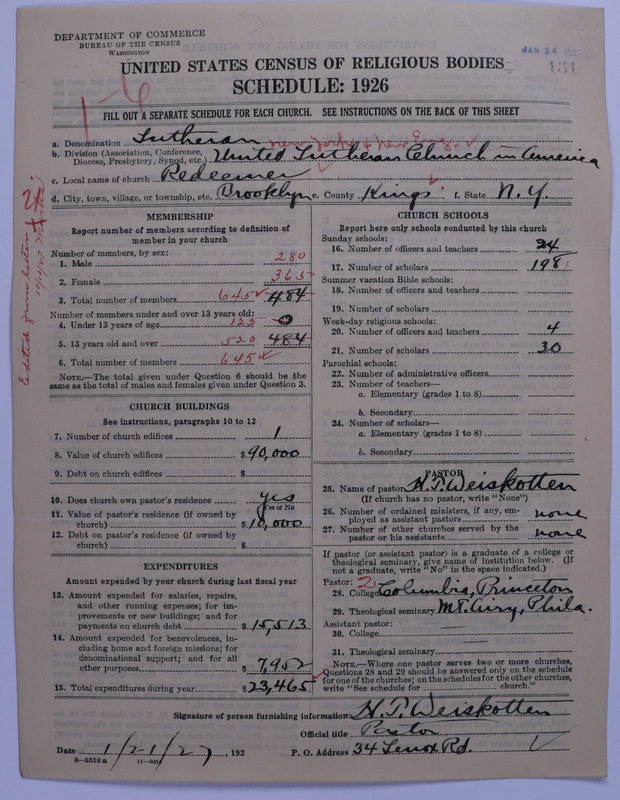 DEPARTMENT OF COMMERCE
BUREAU OF THE CENSUS
WASHINGTON
JAN 24
131
UNITED STATES CENSUS OF RELIGIOUS BODIES
SCHEDULE: 1926
1-6
FILL OUT A SEPARATE SCHEDULE FOR EACH CHURCH. SEE INSTRUCTIONS ON THE BACK OF THIS SHEET
a. Denomination Lutheran New York & New Eng. ✓
b. Division (Association, Conference, Diocese, Presbytery, Synod, etc.) United Lutheran Church in America
c. Local name of church Redeemer
d. City, town, village, or township, etc. Brooklyn e. County Kings f. State N.Y.
MEMBERSHIP
Report number of members according to definition of member in your church
Number of members, by sex:
1. Male 280
2. Female 365
3. Total number of members 645 ✓ 484
Number of members under and over 13 years old:
4. Under 13 years of age 125 0
5. 13 years old and over 520 484
6. Total number of members 645 ✓
NOTE.—The total given under Question 6 should be the same as the total of males and females given under Question 3.
CHURCH BUILDINGS
See instructions, paragraphs 10 to 12
7. Number of church edifices 1
8. Value of church edifices $90,000
9. Debt on church edifices $
10. Does church own pastor's residence yes
Yes or No
11. Value of pastor's residence (if owned by church) $10,000
12. Debt on pastor's residence (if owned by church) $
EXPENDITURES
Amount expended by your church during last fiscal year
13. Amount expended for salaries, repairs, and other running expenses; for improvements or new buildings; and for payments on church debt $15,513
14. Amount expended for benevolences, including home and foreign missions; for denominational support; and for all other purposes $7952
15. Total expenditures during year $23,465 ✓
CHURCH SCHOOLS
Report here only schools conducted by this church
Sunday schools:
16. Number of officers and teachers 24
17. Number of scholars 198
Summer vacation Bible schools:
18. Number of officers and teachers
19. Number of scholars
Week-day religious schools:
20. Number of officers and teachers 4
21. Number of scholars 30
Parochial schools:
22. Number of administrative officers
23. Number of teachers—
a. Elementary (grades 1 to 8)
b. Secondary
24. Number of scholars—
a. Elementary (grades 1 to 8)
b. Secondary
PASTOR
25. Name of pastor H.T. Weiskotten
(If church has no pastor, write "None")
26. Number of ordained ministers, if any, employed as assistant pastors none
27. Number of other churches served by the pastor or his assistants none
If pastor (or assistant pastor) is a graduate of a college or theological seminary, give name of institution below. (If not a graduate, write "No" in the space indicated.)
Pastor: 2
28. College Columbia, Princeton
29. Theological seminary Mt. Airy, Phila.
Assistant pastor:
30. College
31. Theological seminary
NOTE.—Where one pastor serves two or more churches, Questions 28 and 29 should be answered only on the schedule for one of the churches; on the schedules for the other churches, write "See schedule for ........ church."
Signature of person furnishing information H.T. Weiskotten
Official title Pastor
Date 1/21/27, 192
P. O. Address 34 Lenox Rd. ✓
8—5518 a